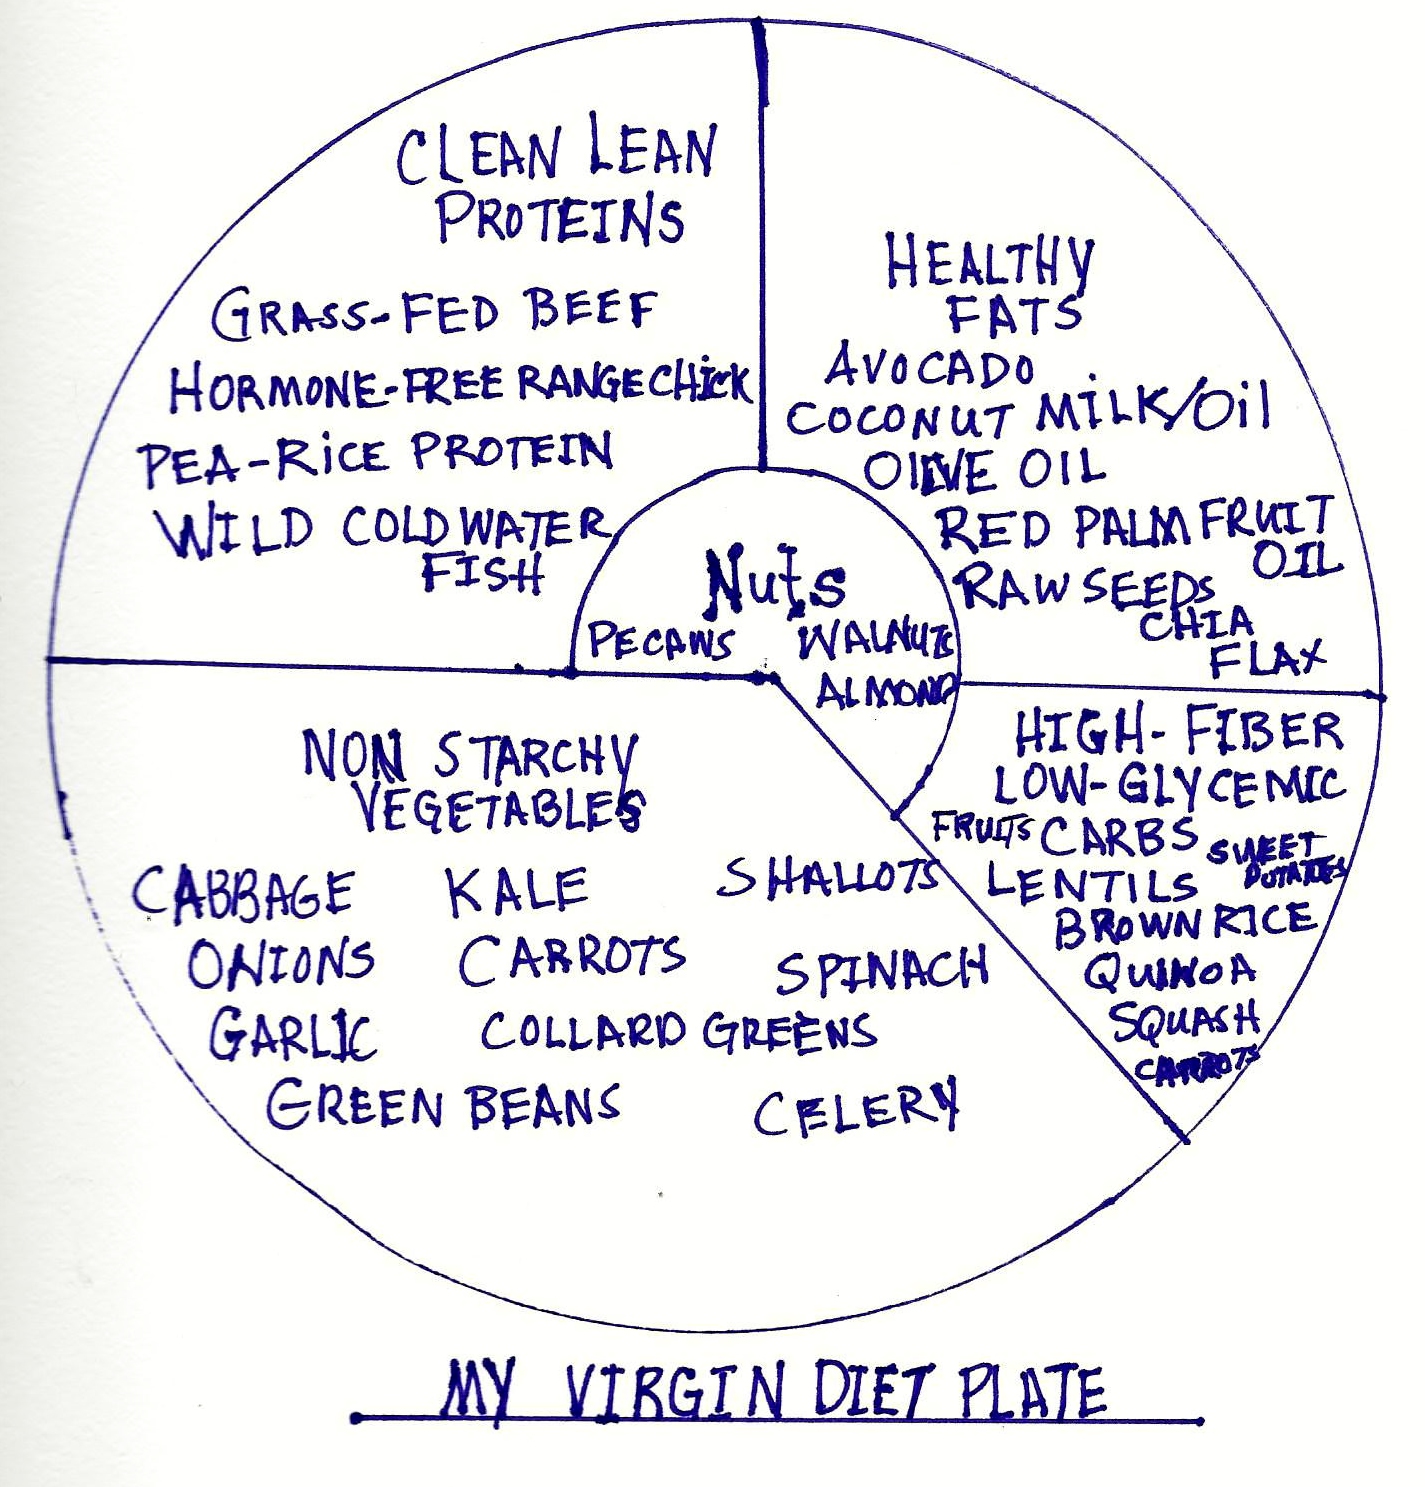 CLEAN LEAN
PROTEINS
GRASS-FED BEEF
HORMONE-FREE RANGE CHICK
PEA-RICE PROTEIN
WILD COLD WATER
FISH
HEALTHY
FATS
AVOCADO
COCONUT MILK/OIL
OLIVE OIL
RED PALM FRUIT
OIL
RAW SEEDS
CHIA
FLAX
Nuts
PECANS WALNUTS
ALMOND
HIGH-FIBER
LOW-GLYCEMIC
FRUITS CARBS SWEET
POTATOES
LENTILS
BROWN RICE
QUINOA
SQUASH
CARROTS
NON STARCHY
VEGETABLES
CABBAGE KALE SHALLOTS
ONIONS CARROTS SPINACH
GARLIC COLLARD GREENS
GREEN BEANS CELERY
MY VIRGIN DIET PLATE